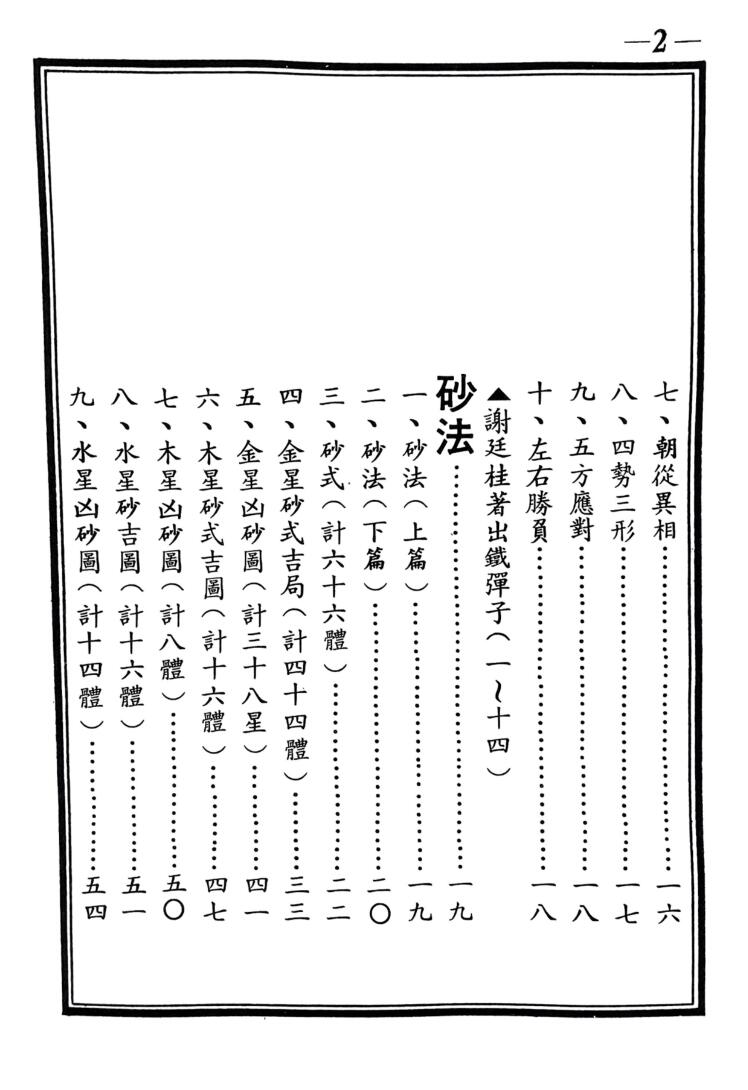 —2—
七、朝從異相……………………一六
八、四勢三形……………………一七
九、五方應對……………………一八
十、左右勝負……………………一八
▲謝廷桂著出鐵彈子（一～十四）
砂法……………………一九
一、砂法（上篇）……………………一九
二、砂法（下篇）……………………二〇
三、砂式（計六十六體）……………………二二
四、金星砂式吉局（計四十四體）…………三三
五、金星凶砂圖（計三十八星）…………四一
六、木星砂式吉圖（計十六體）…………四七
七、木星凶砂圖（計八體）…………五〇
八、水星砂吉圖（計十六體）…………五一
九、水星凶砂圖（計十四體）…………五四